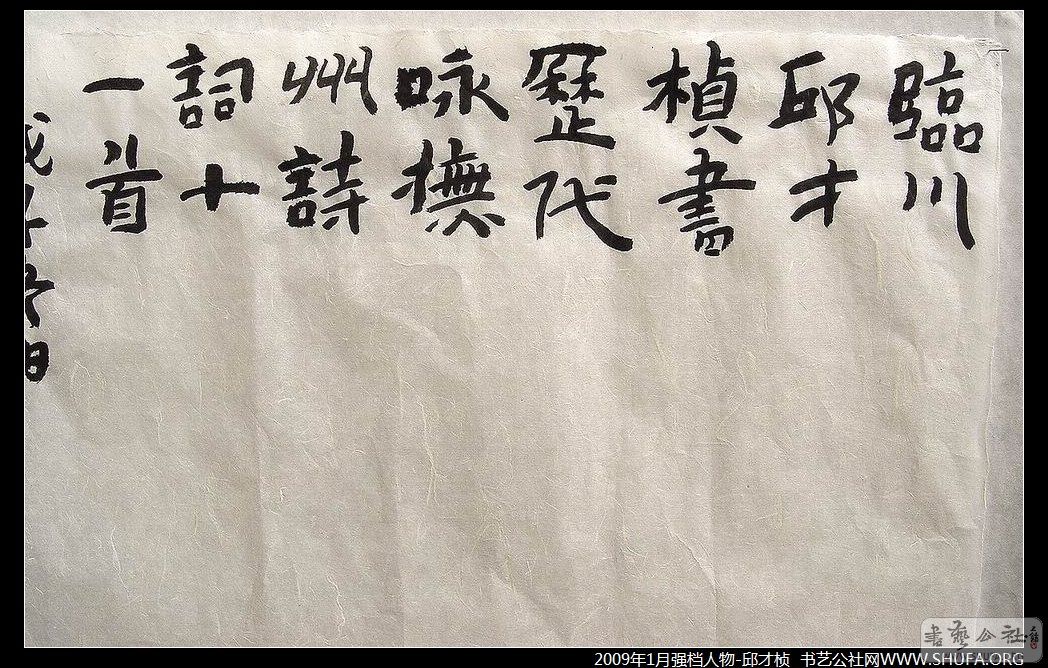 臨川
邱才
楨書
歷代
咏撫
州詩
詞十
一首
書藝公社
2009年1月强档人物-邱才桢 书艺公社网WWW.SHUFA.ORG